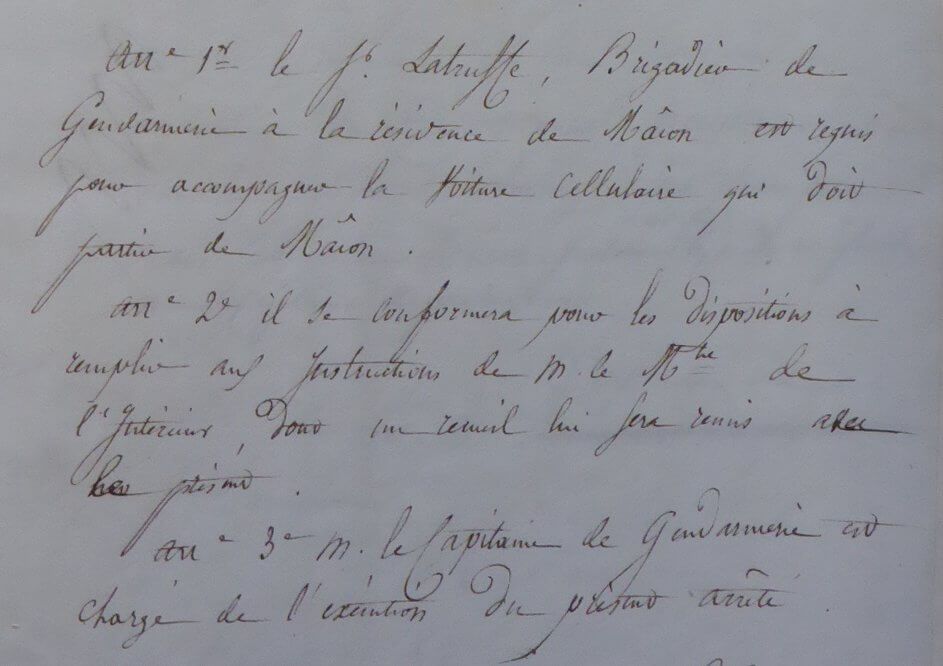 Art e 1er le Sr. Latruffe, Brigadier de
Gendarmerie à la résidence de Mâcon est requis
pour accompagner la Voiture Cellulaire qui doit
partir de Mâcon.
Art e 2e il se conformera pour les dispositions à
remplir aux Instructions de M. le Mtre de
l'Intérieur, dont un recueil lui sera remis avec
le présent.
Art e 3e M. le Capitaine de Gendarmerie est
chargé de l'exécution du présent arrêté